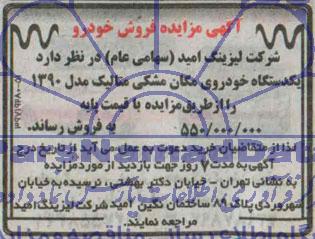 آگهی مزایده فروش خودرو
شرکت لیزینگ امید (سهامی عام) در نظر دارد
یکدستگاه خودروی مگان مشکی متالیک مدل ۱۳۹۰
را از طریق مزایده با قیمت پایه
۵۵۰/۰۰۰/۰۰۰ به فروش رساند.
لذا از متقاضیان خرید دعوت به عمل می آید از تاریخ درج
آگهی به مدت ۷ روز جهت بازدید از مورد مزایده
به نشانی تهران - خیابان دکتر بهشتی، نرسیده به خیابان
سهروردی پلاک ۸۹ ساختمان نگین امید شرکت لیزینگ امید
مراجعه نمایند.